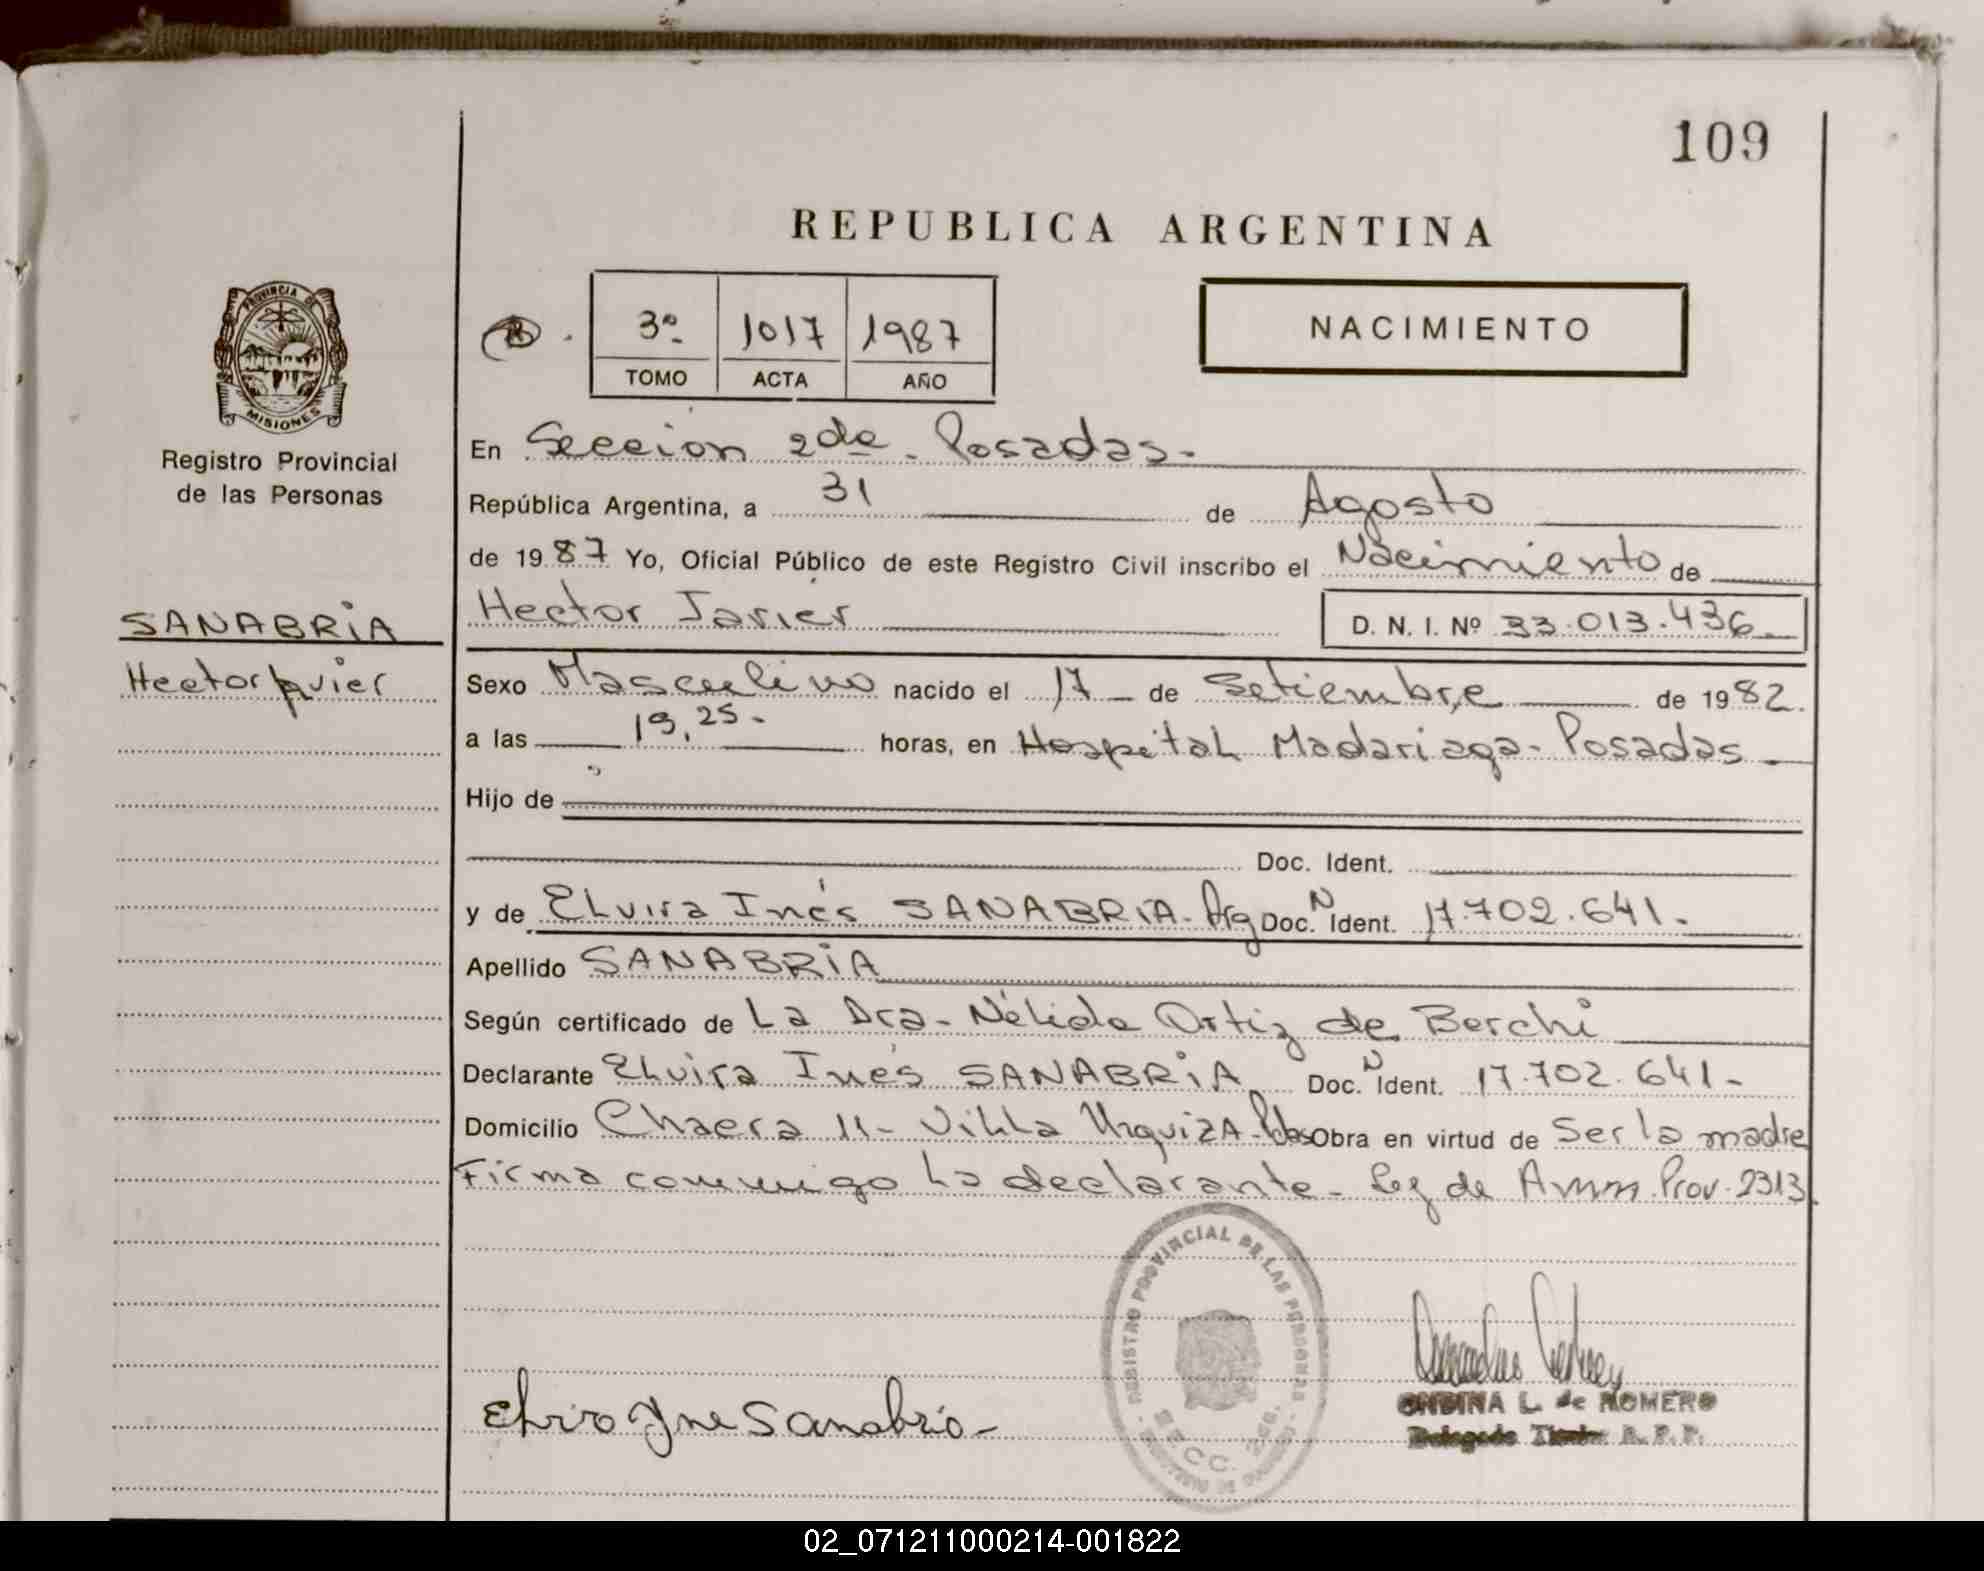 109
REPUBLICA ARGENTINA
PROVINCIA DE
MISIONES
Registro Provincial
de las Personas
3º
1017
1987
TOMO
ACTA
AÑO
NACIMIENTO
En Sección 2da - Posadas.-
República Argentina, a 31 de Agosto
de 1987 Yo, Oficial Público de este Registro Civil inscribo el Nacimiento de
SANABRIA
Hector Javier
Hector Javier
D. N. I. Nº 33.013.436
Sexo Masculino nacido el 17 de Setiembre de 1982.
a las 19,25. horas, en Hospital Madariaga - Posadas
Hijo de
Doc. Ident.
y de Elvira Inés SANABRIA - Arg Doc. N Ident. 17.702.641.-
Apellido SANABRIA
Según certificado de La Dra. Nélida Ortiz de Berchi
Declarante Elvira Inés SANABRIA Doc. N Ident. 17.702.641-
Domicilio Chacra 11 - Villa Urquiza - Pdas Obra en virtud de Ser la madre
Firma conmigo la declarante - Ley de Amn. Prov. 2313
REGISTRO PROVINCIAL DE LAS PERSONAS
SECC. 2da.
Elvira Ine Sanabria-
ONDINA L. de ROMERO
Delegada Titular R. P. P.
02_071211000214-001822